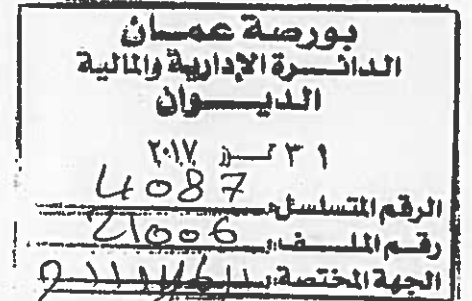 بورصة عمان
الدائرة الإدارية والمالية
الديوان
٣١ تموز ٢٠١٧
الرقم المتسلسل: 4087
رقم الملف: 21006
الجهة المختصة: